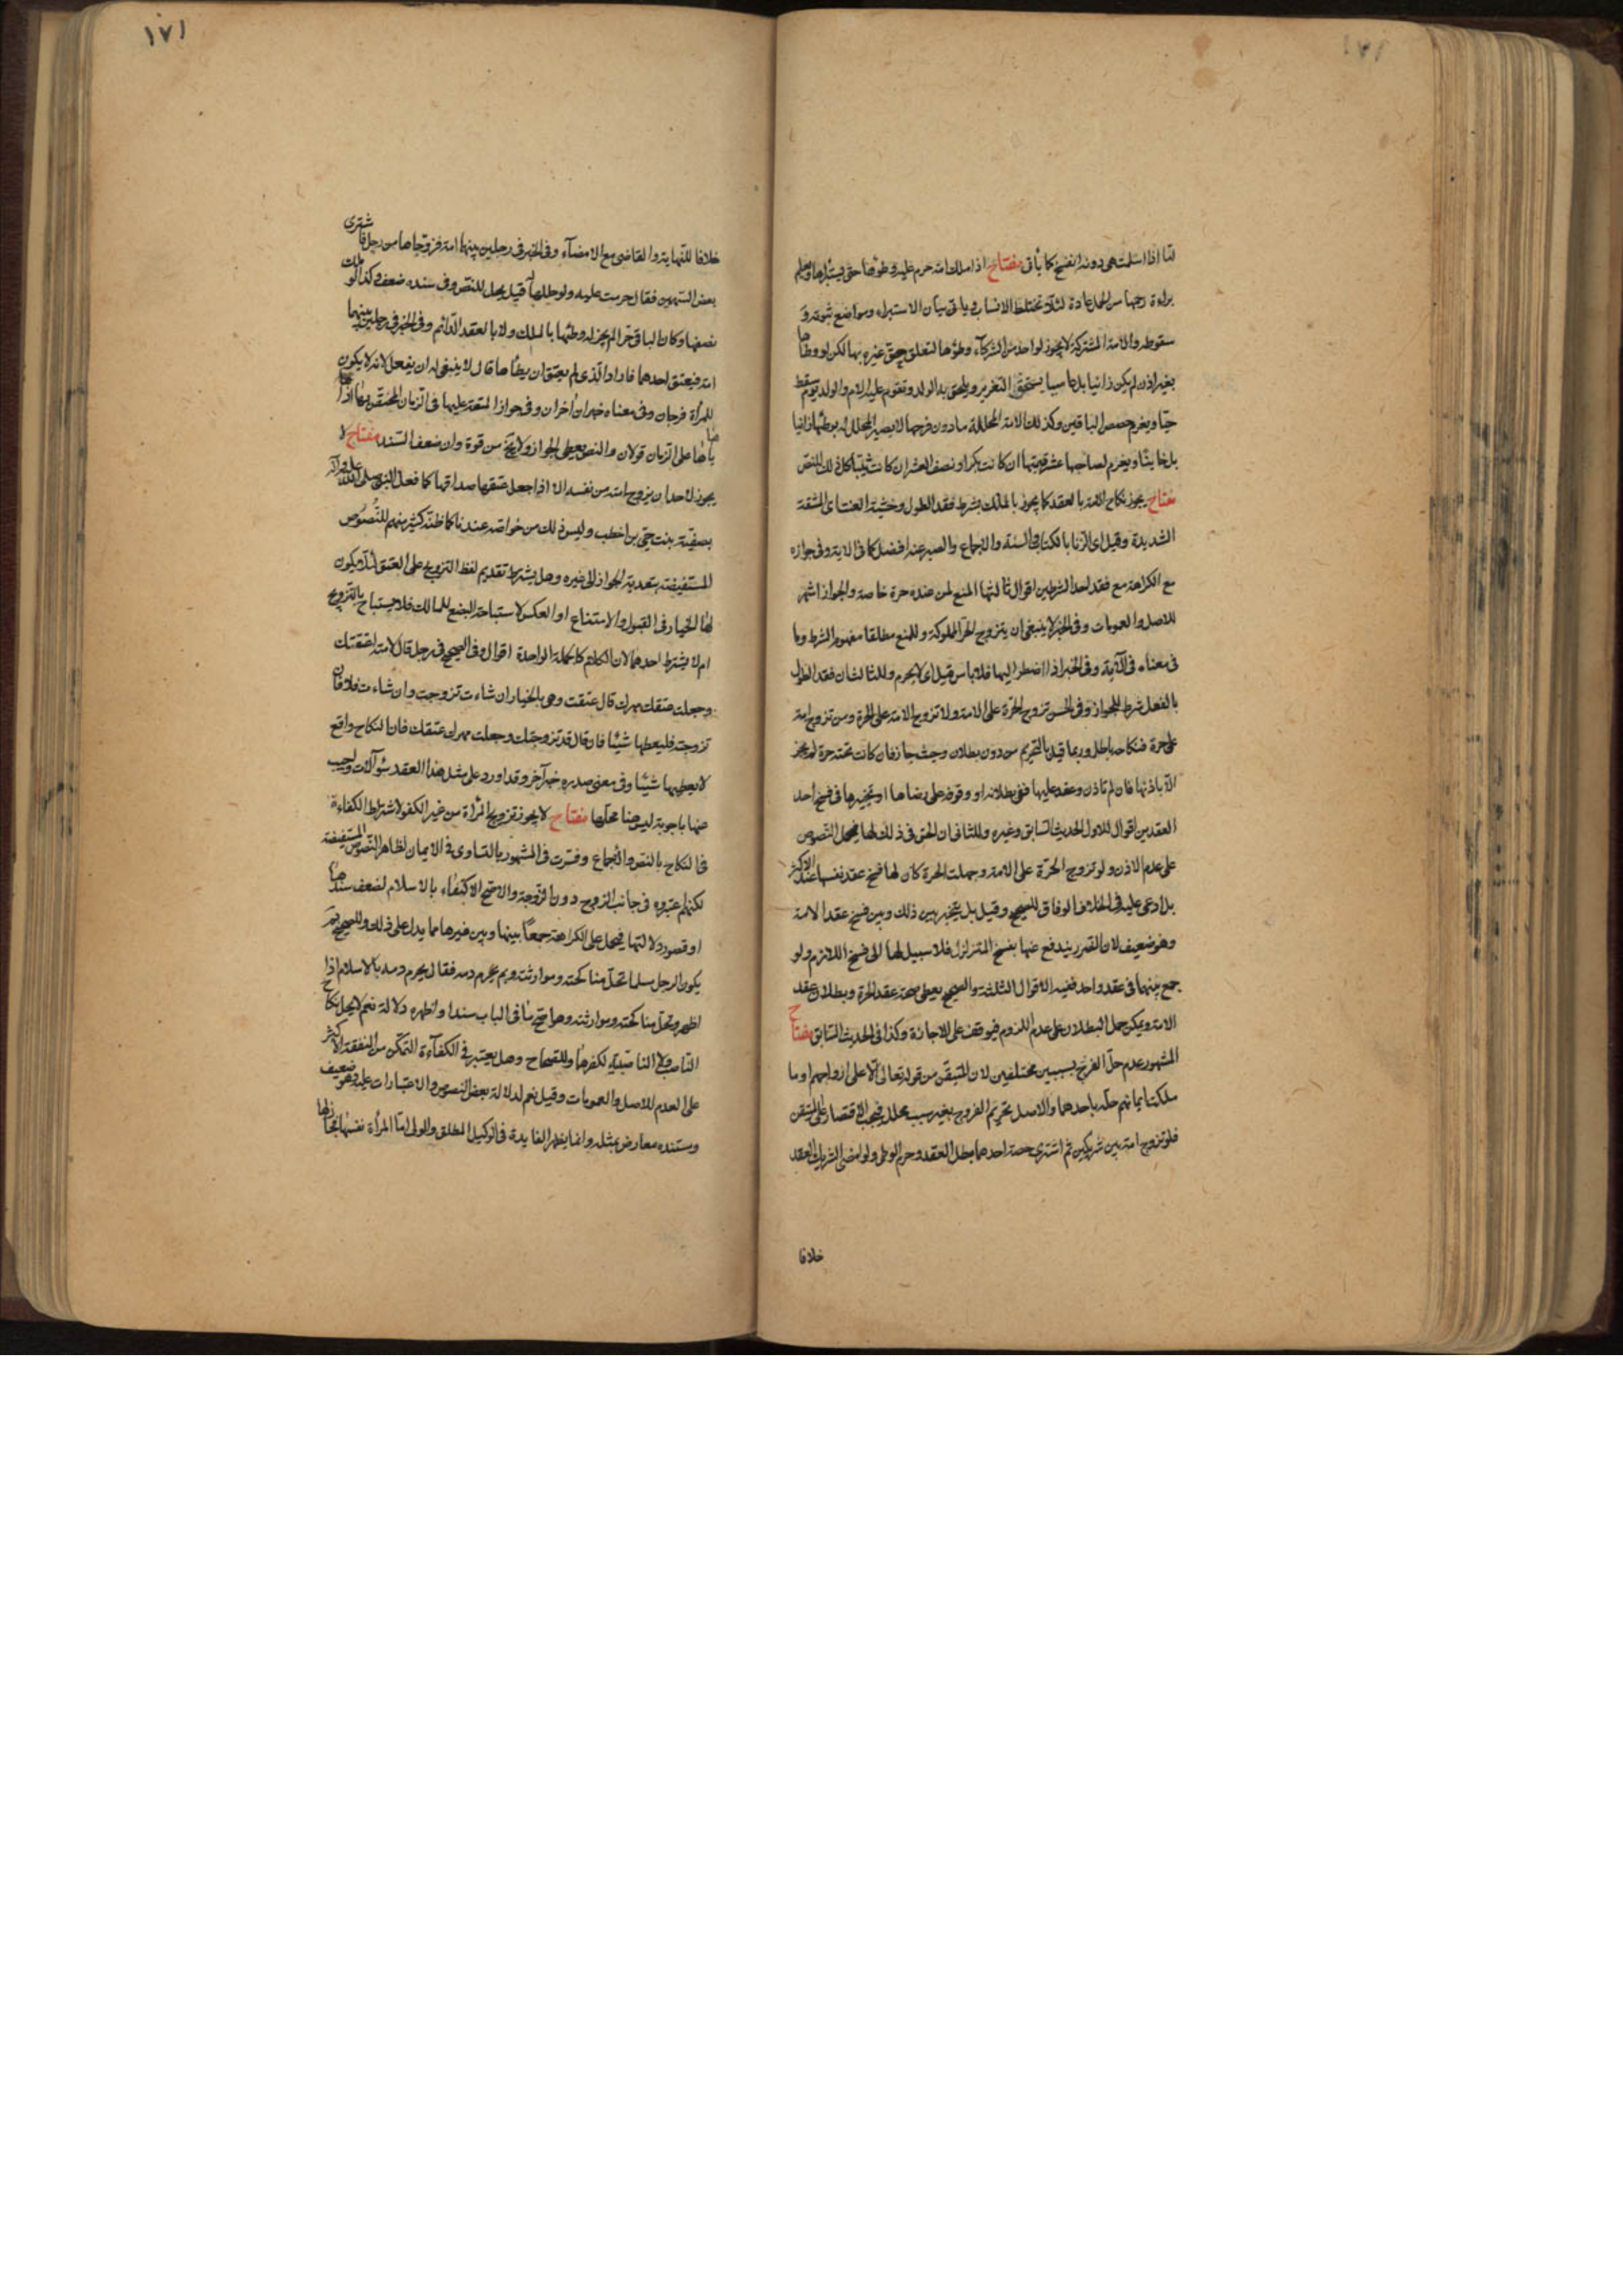 ١٧١
لنا اذا اسلمت هی دونه انفسخ کما یأتی مفتاح اذا ملك امة حرم علیه وطؤها حتی یستبرأها ویعلم
براءة رحمها من الحمل عادة لئلا تختلط الانساب ویاتی بیان الاستبراء ومواضع ثبوته و
سقوطه والامة المشترکة لا یجوز لواحد من الشرکاء وطؤها لتعلق حق غیره بها لکن لو وطأها
بغیر اذن لم یکن زانیا بل عاصیا یستحق التعزیر ویلحق به الولد وتقوم علیه الام والولد یوم سقط
حیا ویغرم حصص الباقین وکذلك الامة المحللة ما دون فرجها لا یصیر المحلل له بوطئها زانیا
بل خاینا ویغرم لصاحبها عشر قیمتها ان کانت بکرا ونصف العشر ان کانت ثیبا کل ذلك للنص
مفتاح یجوز نکاح الامة بالعقد کما یجوز بالملك بشرط فقد الطول وخشیة العنت ای المشقة
الشدیدة وقیل ای الزنا بالکتاب والسنة والاجماع والصبر عنه افضل کما فی الایة وفی جوازه
مع الکراهة مع فقد احد الشرطین اقوال ثالثها المنع لمن عنده حرة خاصة والجواز اشهر
للاصل والعمومات وفی الخبر لا ینبغی ان یتزوج الحر المملوکة وللمنع مطلقا مفهوم الشرط وما
فی معناه فی الآیة وفی الخبر اذا اضطر الیها فلا باس قیل ای لا یحرم وللثالث ان فقد الطول
بالفعل شرط للجواز وفی الحسن تزوج الحرة علی الامة ولا تزوج الامة علی الحرة ومن تزوج امة
علی حرة فنکاحه باطل وربما قیل بالتحریم من دون بطلان وحیث جاز فان کانت تحته حرة لم یجز
الا باذنها فان لم تاذن وعقد علیها ففی بطلانه او وقوفه علی رضاها او تخییرها فی فسخ احد
العقدین اقوال للاول الحدیث السابق وغیره وللثانی ان الحق فی ذلك لها فیحمل النصوص
علی عدم الاذن ولو تزوج الحرة علی الامة وجهلت الحرة کان لها فسخ عقد نفسها عند الاکثر
بل ادعی علیه فی الخلاف الوفاق للصحیح وقیل بل یتخیر بین ذلك وبین فسخ عقد الامة
وهو ضعیف لان الضرر یندفع عنها بفسخ المتزلزل فلا سبیل لها الی فسخ اللازم ولو
جمع بینهما فی عقد واحد ففیه الاقوال الثلثة والصحیح یعطی صحة عقد الحرة وبطلان عقد
الامة ویمکن حمل البطلان علی عدم اللزوم فیوقف علی الاجازة وکذا فی الحدیث السابق مفتاح
المشهور عدم حل الفرج بسببین مختلفین لان المتیقن من قوله تعالی الا علی ازواجهم او ما
ملکت ایمانهم حله باحدهما والاصل تحریم الفروج بغیر سبب محلل فیجب الاقتصار علی المتیقن
فلو تزوج امة بین شریکین ثم اشتری حصة احدهما بطل العقد وحرم الوطی ولو امضی الشریك العقد
خلافا
١٧١
خلافا للنهایة والقاضی مع الامضاء وفی الخبر فی رجلین بینهما امة فزوجاها من رجل فاشتری
بعض السهمین فقال حرمت علیه ولو حللها له قیل یحل للنص وفی سنده ضعف وکذا لو ملك
نصفها وکان الباقی حرا لم یجز له وطئها بالملك ولا بالعقد الدائم وفی الخبر فی رجلین بینهما
امة فیعتق احدهما فاراد الذی لم یعتق ان یطأها قال لا ینبغی له ان یفعل لانه لا یکون
للمرأة فرجان وفی معناه خبران اخران وفی جواز المتعة علیها فی الزمان المختص بها اذا
هایاها علی الزمان قولان والنص یعطی الجواز ولا یخ من قوة وان ضعف السند مفتاح لا
یجوز لاحد ان یزوج امته من نفسه الا اذا جعل عتقها صداقها کما فعل النبی صلی الله علیه وآله
بصفیة بنت حیی بن اخطب ولیس ذلك من خواصه عندنا کما ظنه کثیر منهم للنصوص
المستفیضة بتعدیة الجواز الی غیره وهل یشترط تقدیم لفظ التزویج علی العتق لئلا یکون
لها الخیار فی القبول والامتناع او العکس لاستباحة البضع للمالك فلا یستباح بالتزویج
ام لا یشترط احدهما لان الکلام کالجملة الواحدة اقوال وفی الصحیح فی رجل قال لامته اعتقتك
وجعلت عتقك مهرك قال عتقت وهی بالخیار ان شاءت تزوجت وان شاءت فلا فان
تزوجته فلیعطها شیئا فان قال قد تزوجتك وجعلت مهرك عتقك فان النکاح واقع
لا یعطیها شیئا وفی معنی صدره خبر آخر وقد اورد علی مثل هذا العقد سؤالات واجیب
عنها باجوبة لیس هنا محلها مفتاح لا یجوز تزویج المرأة من غیر الکفو لاشتراط الکفاءة
فی النکاح بالنص والاجماع وفسرت فی المشهور بالتساوی فی الایمان لظاهر النصوص المستفیضة
لکنهم اعتبروه فی جانب الزوج دون الزوجة والاصح الاکتفاء بالاسلام لضعف سندها
او قصور دلالتها فیحمل علی الکراهة جمعا بینها وبین غیرها مما یدل علی ذلك وللصحیح بم
یکون الرجل مسلما تحل مناکحته وموارثته وبم یحرم دمه فقال یحرم دمه بالاسلام اذا
اظهر وتحل مناکحته وموارثته وهو اصح ما فی الباب سندا واظهره دلالة نعم لا یحل نکاح
الناصب ولا الناصبیة لکفرهما وللصحاح وهل یعتبر فی الکفاءة التمکن من النفقة الاکثر
علی العدم للاصل والعمومات وقیل نعم لدلالة بعض النصوص والاعتبارات علیه وهو ضعیف
ومستنده معارض بمثله وانما یظهر الفایدة فی الوکیل المطلق والولی اما المرأة نفسها فجائز لها